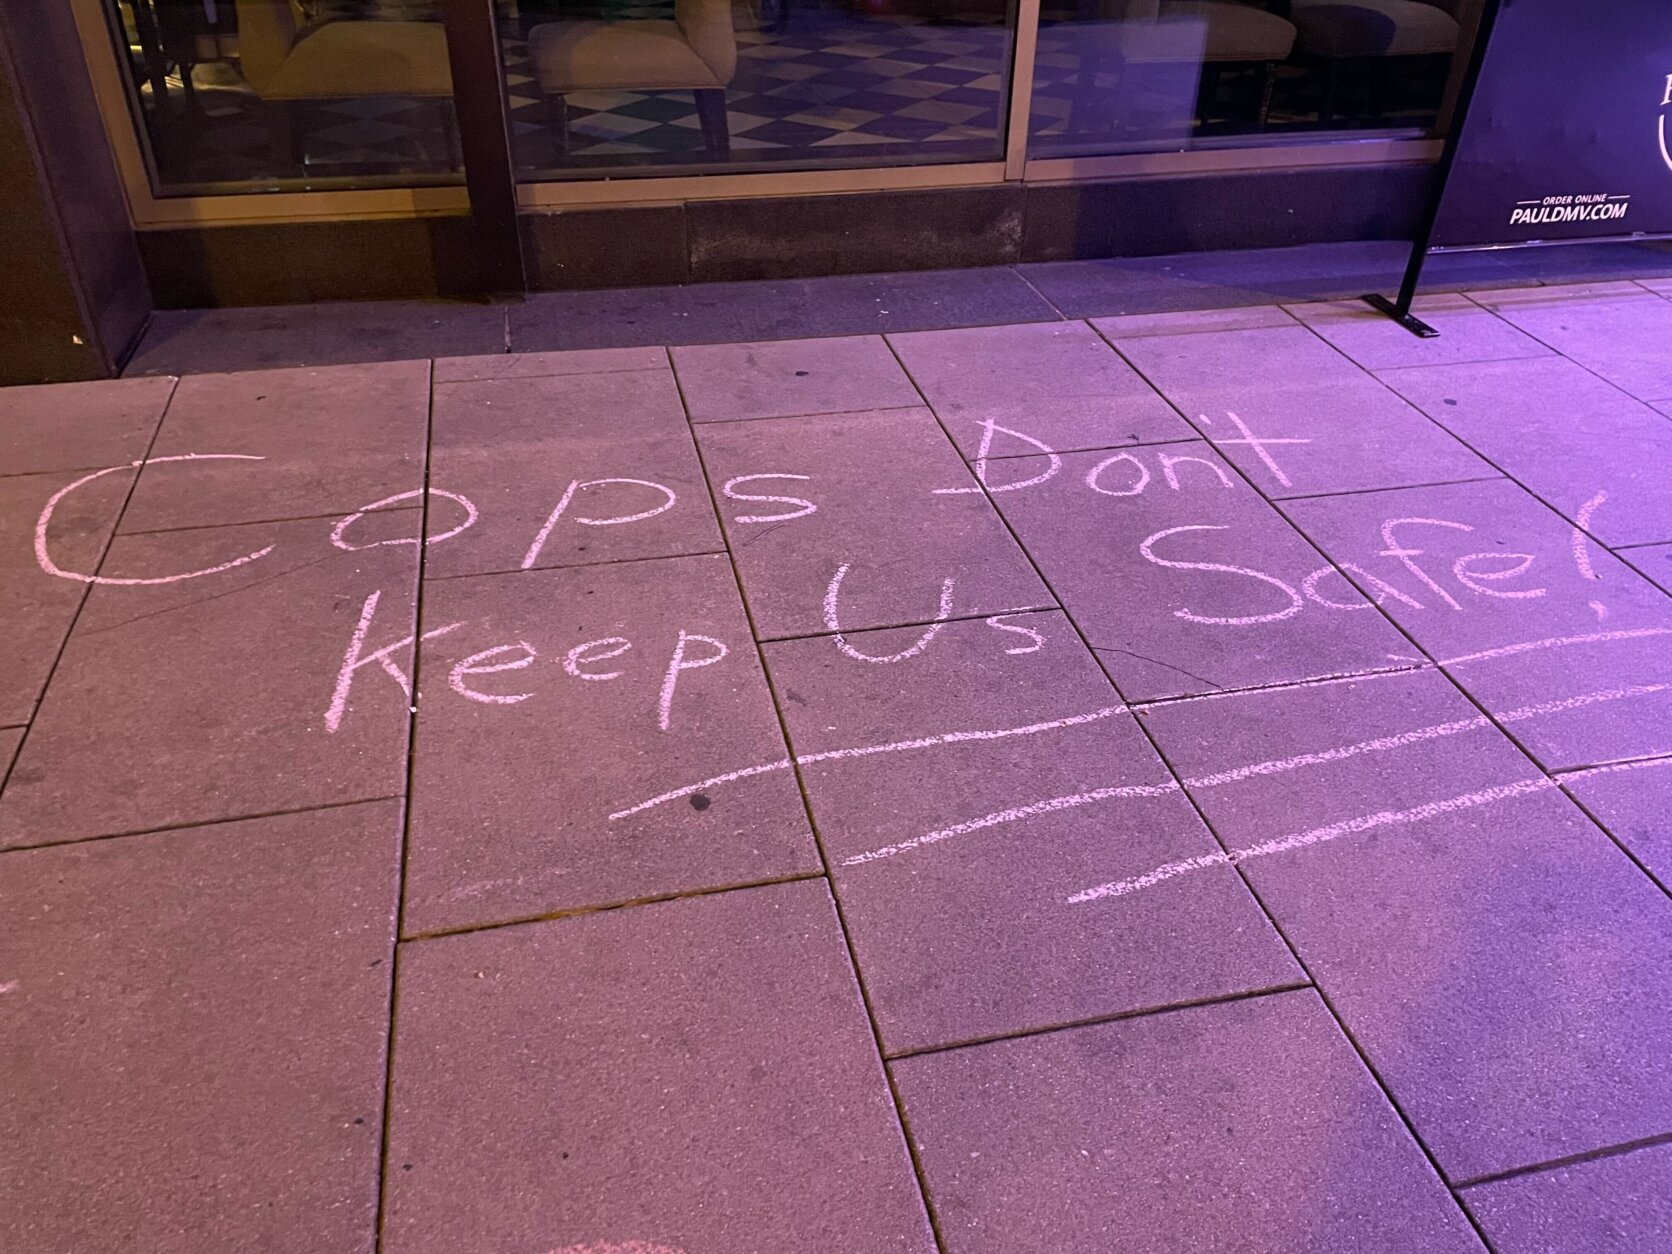 Cops Don't
Keep Us Safe!
ORDER ONLINE
PAULDMV.COM